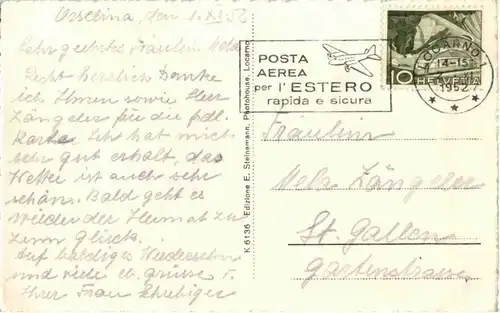 Orselina, den 1. XI. 52
Sehr geehrtes Fräulein
Recht herzlich Danke
ich Ihnen sowie Herr
Zängeler für die frdl.
Karte. Ich hat mich
sehr gut erholt, das
Wetter ist auch sehr
schön. Bald geht es
wieder der Heimat zu
zum Glück.
Auf baldiges Wiedersehn
und viele Grüsse v.
Ihrer Frau
K 6136 Edizione E. Steinemann, Photohouse, Locarno
POSTA
AEREA
per l'ESTERO
rapida e sicura
LOCARNO 1
14-15
1952
10 HELVETIA
Fräulein
Zängeler
St. Gallen
Gartenstrasse